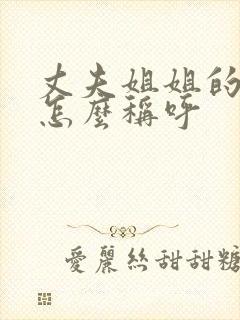 丈夫姐姐的
怎麼稱呼
愛麗絲甜甜糖